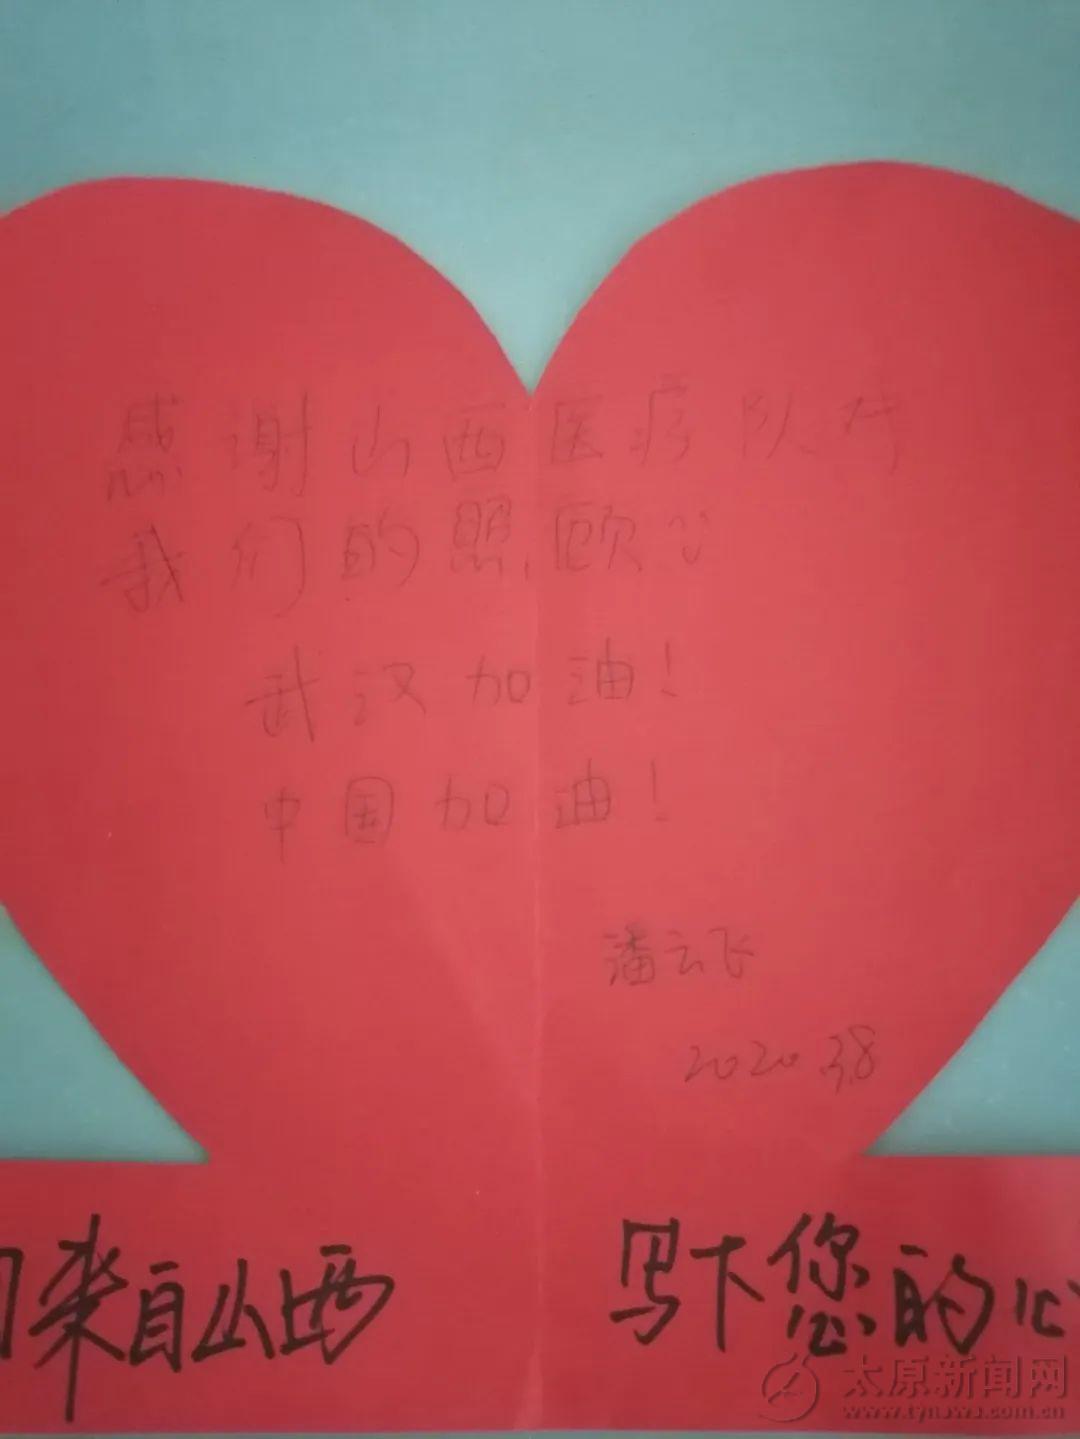 感谢山西医疗队对
我们的照顾。
武汉加油!
中国加油!
潘云飞
2020 3.8
们来自山西
写下您的心
太原新闻网
www.tynews.com.cn